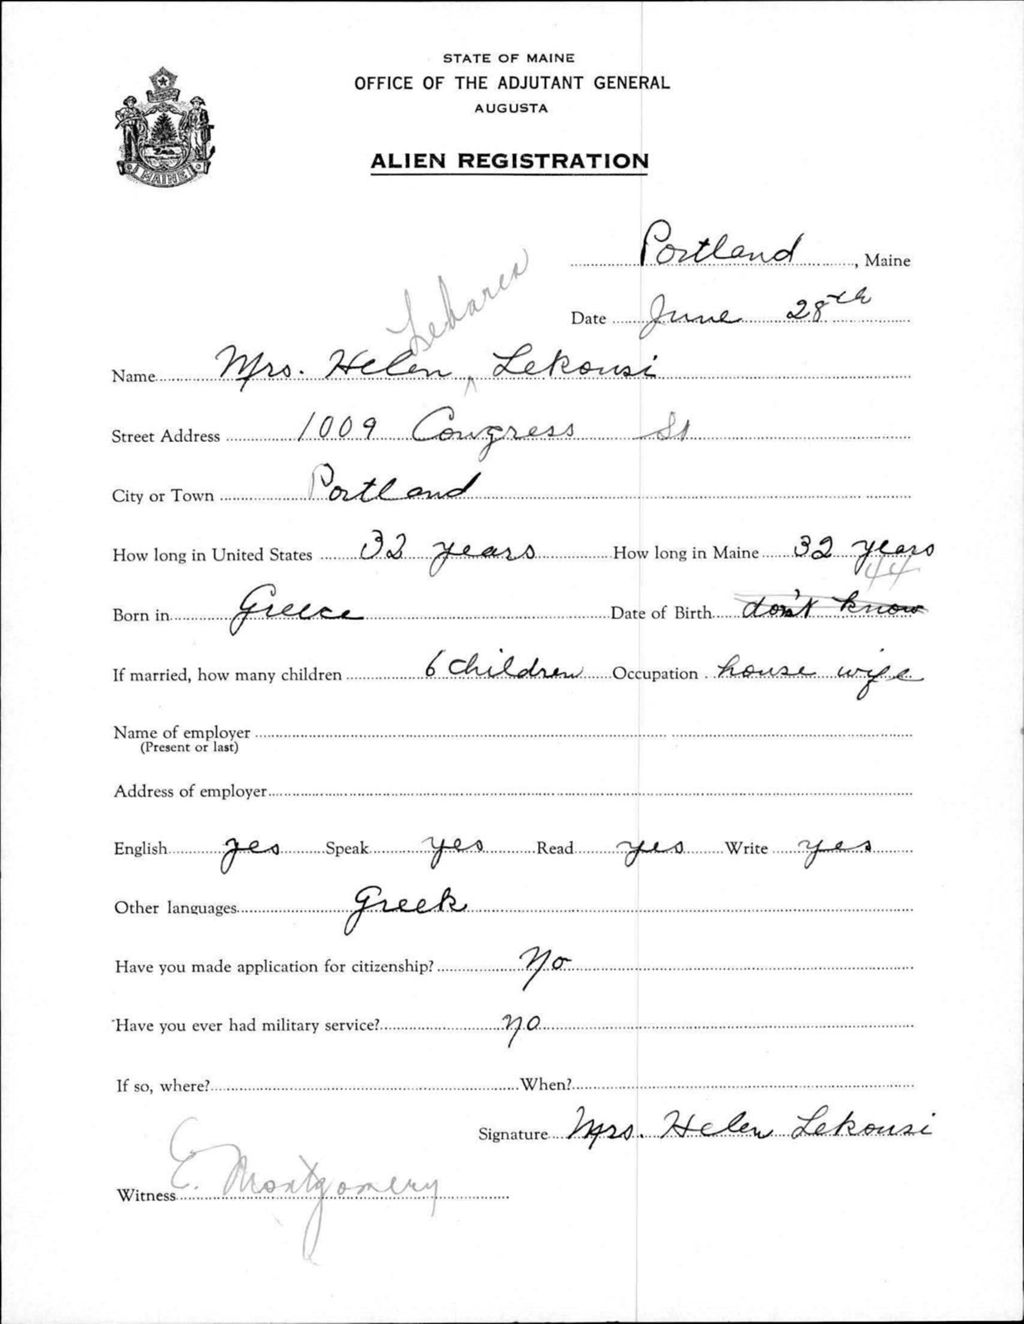 STATE OF MAINE
OFFICE OF THE ADJUTANT GENERAL
AUGUSTA
ALIEN REGISTRATION
MAINE
Portland, Maine
Date June 28th
Name Mrs. Helen Lekousi
Street Address 1009 Congress St
City or Town Portland
How long in United States 32 years How long in Maine 32 years
44
Born in Greece Date of Birth don't know
If married, how many children 6 children Occupation house wife
Name of employer
(Present or last)
Address of employer
English yes Speak yes Read yes Write yes
Other languages Greek
Have you made application for citizenship? No
Have you ever had military service? no
If so, where? When?
Signature Mrs. Helen Lekousi
Witness E. Montgomery